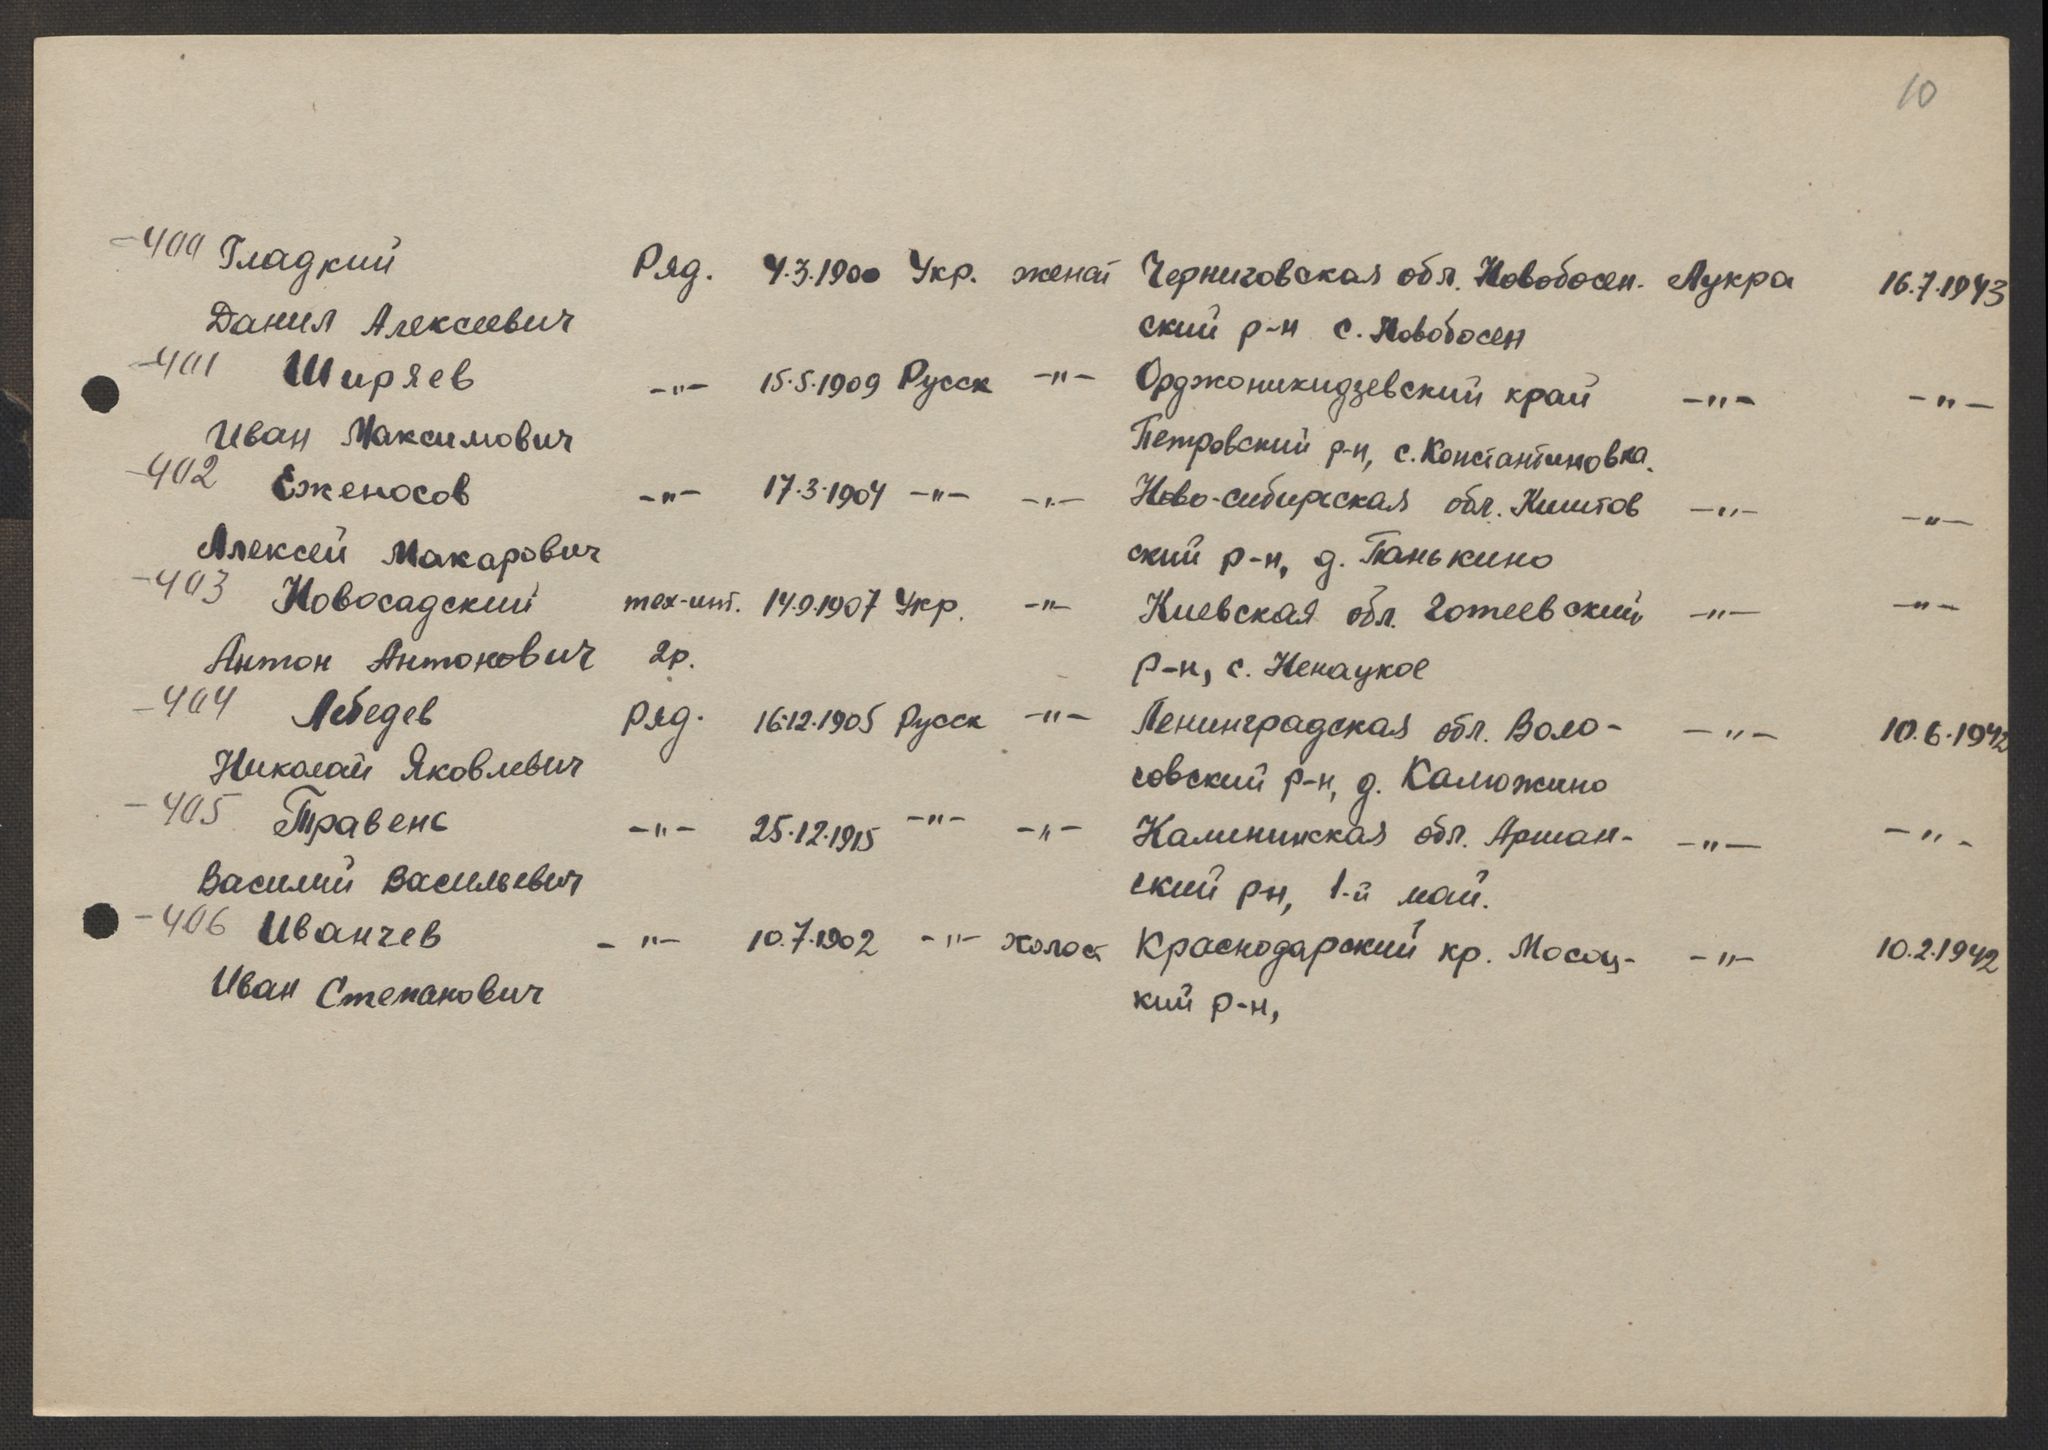 10
-400 Гладкий Ряд. 4.3.1900 Укр. женат Черниговская обл. Новобосен- Лукра 16.7.1943
Данил Алексеевич ский р-н с. Новобосен
-401 Ширяев -"- 15.5.1909 Русск -"- Орджоникидзевский край -"- -"-
Иван Максимович Петровский р-н, с. Константиновка.
-402 Еженосов -"- 17.3.1904 -"- -"- Ново-сибирская обл. Киштов -"- -"-
Алексей Макарович ский р-н, д. Панькино
-403 Новосадский тех-инт. 14.9.1907 Укр. -"- Киевская обл. Готеевский -"- -"-
Антон Антонович 2р. р-н, с. Ненаукое
-404 Лебедев Ряд. 16.12.1905 Русск -"- Ленинградская обл. Воло- -"- 10.6.1942
Николай Яковлевич совский р-н, д. Калюжино
-405 Травенс -"- 25.12.1915 -"- -"- Калининская обл. Аршан- -"- -"-
Василий Васильевич ский р-н, 1-й май.
-406 Иванчев -"- 10.7.1902 -"- холост Краснодарский кр. Мосоц- -"- 10.2.1942
Иван Степанович кий р-н,